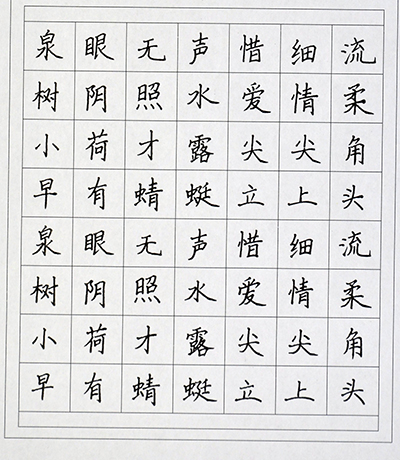 泉眼无声惜细流
树阴照水爱情柔
小荷才露尖尖角
早有蜻蜓立上头
泉眼无声惜细流
树阴照水爱情柔
小荷才露尖尖角
早有蜻蜓立上头